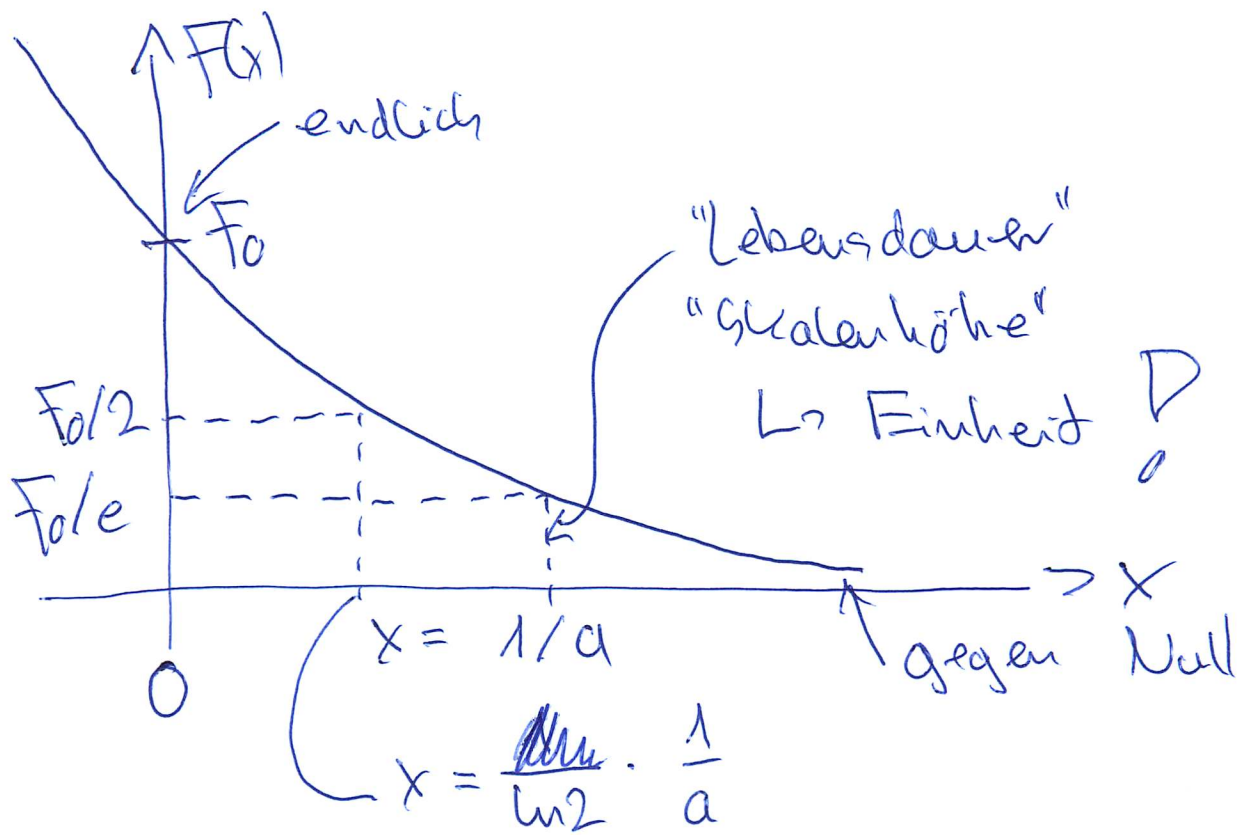 F(x)
endlich
F₀
"Lebensdauer"
"Skalenhöhe"
↳ Einheit !
F₀/2
F₀/e
> x
x = 1/a
gegen Null
0
x = ln2 · 1/a